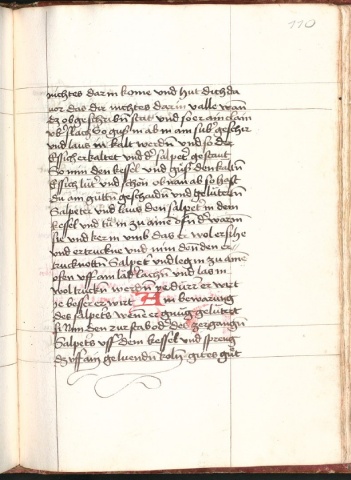 110
nichtes dar in kome vnd hut dich da
vor das dir nichtes dar in valle wan
dz obgeschribn stat vnd so er ain clain
vber slach so guss in ab in ain suber geschir
vnd laus in kalt werden vnd so der
essich erkaltet vnd der salpeter gestaut
So nim den kessel vnd guss den kaltn
essich luter vnd schön oben ab so hest
du ain guttn geschaidn vnd gelutertn
Salpeter vnd laus den salpeter in dem
kessel vnd tu in zu aine ofen der warm
sie vnd ker in vmb das er wol ersihe
vnd ertruckne vnd nim den den er
trucknottn Salpeter vnd leg in zu aine
ofen vff ain lilachn vnd las in
wol truckn werden ye dürrer er wirt
je besser er wirt Ain bewarung
des salpeters wene er gnug gelutert
si Nim den zerstab od des zergangn
Salpeters vff dem kessel vnd spreng
dz vff ain gluendn koln gutes gut